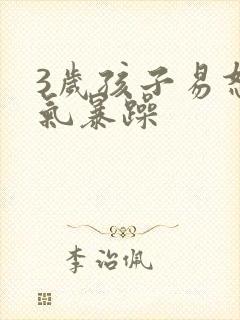 3歲孩子易怒
氣暴躁
李治佩